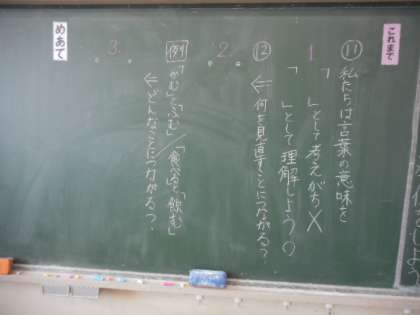 これまで
⑪ 私たちは言葉の意味を
1
「　」として考えがち×
「　」として理解しよう○
⑫ ← 何を見直すことにつながる?
2
例 「かむ」と「ふむ」/「食べる」と「飲む」
← どんなことにつながる?
3
めあて